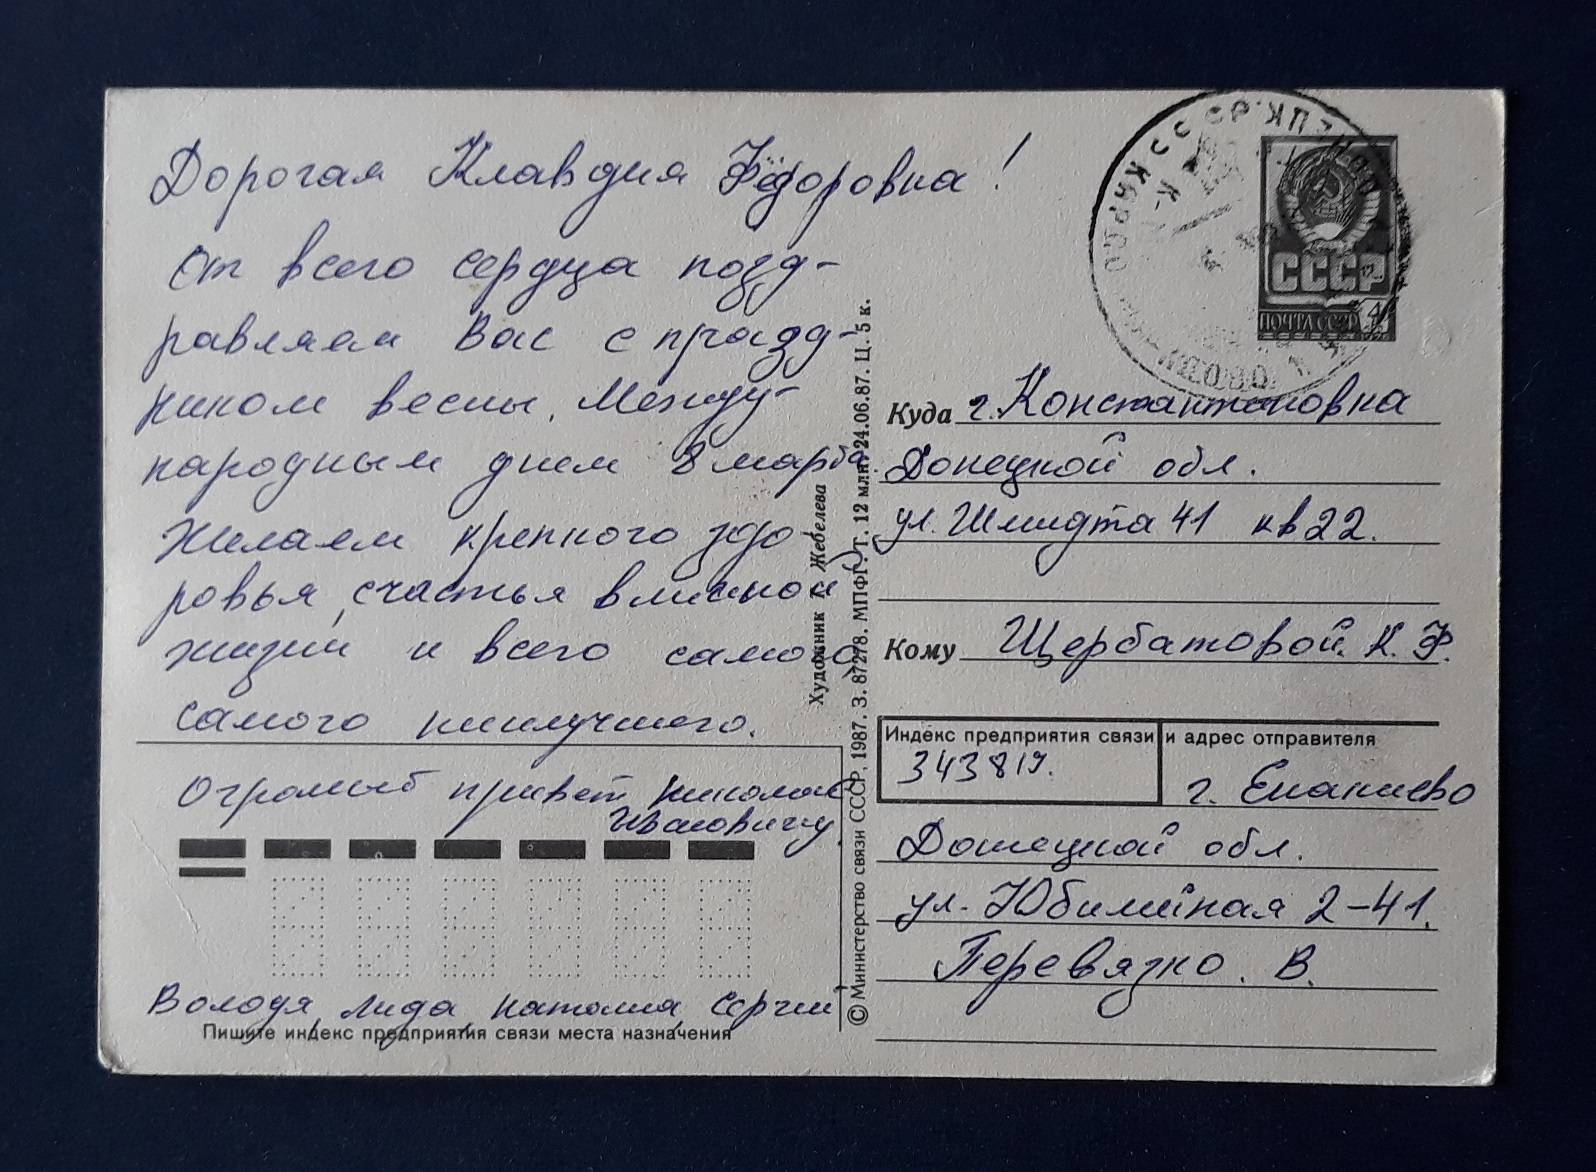 Дорогая Клавдия Фёдоровна!
От всего сердца позд-
равляем Вас с празд-
ником весны, Между-
народным днем 8 марта.
Желаем крепкого здо
ровья, счастья в личной
жизни и всего самого
самого наилучшего.
Огромный привет Николаю
Ивановичу.
Володя, Лида, Наташа, Сергей
Пишите индекс предприятия связи места назначения
Художник Т. Жебелева
© Министерство связи СССР, 1987. З. 87278. МПФГ. Т. 12 млн. 24.06.87. Ц. 5 к.
СССР
ПОЧТА СССР
4
Куда г. Константиновка
Донецкой обл.
ул. Шмидта 41 кв 22.
Кому Щербатовой. К. Ф.
Индекс предприятия связи и адрес отправителя
343819.
г. Енакиево
Донецкой обл.
ул. Юбилейная 2-41.
Перевязко. В.